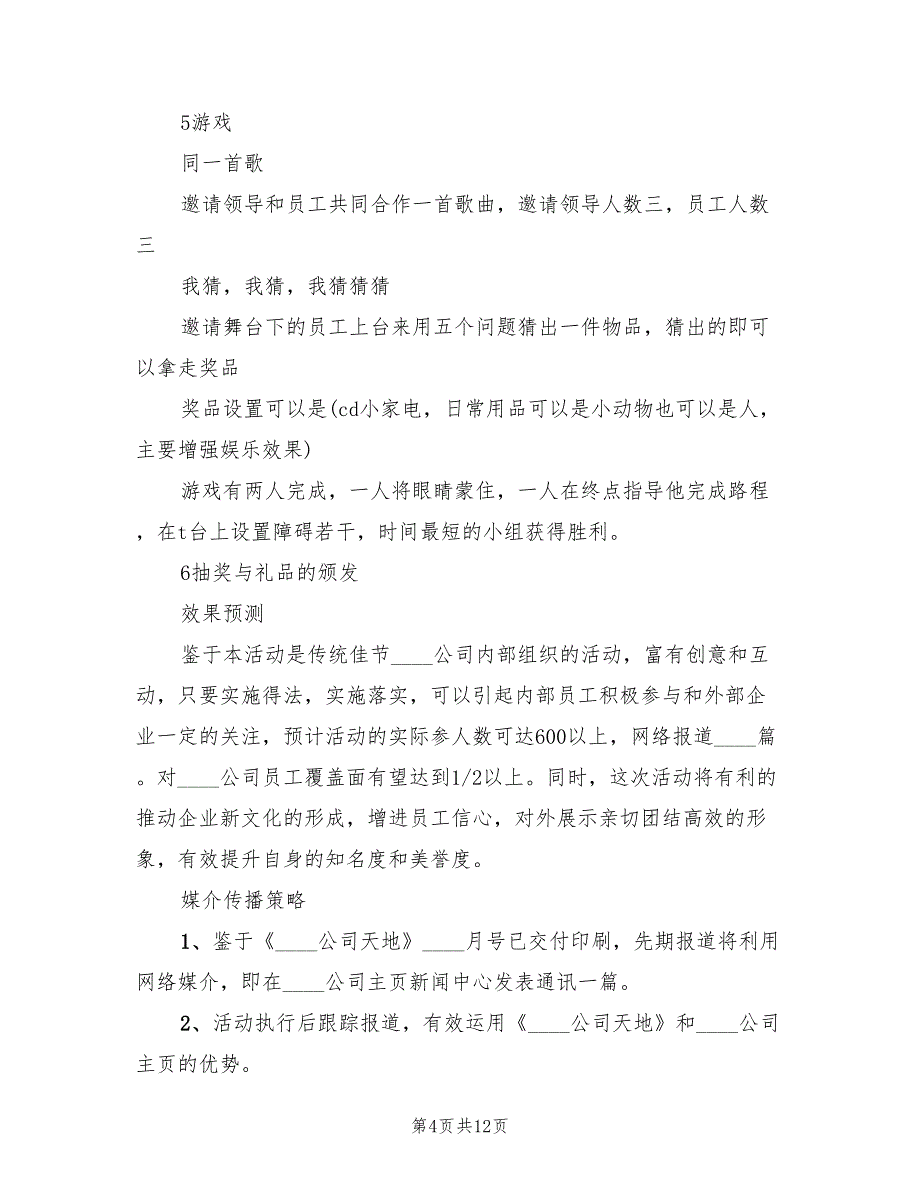 5游戏
同一首歌
邀请领导和员工共同合作一首歌曲，邀请领导人数三，员工人数
三
我猜，我猜，我猜猜猜
邀请舞台下的员工上台来用五个问题猜出一件物品，猜出的即可
以拿走奖品
奖品设置可以是(cd小家电，日常用品可以是小动物也可以是人，
主要增强娱乐效果)
游戏有两人完成，一人将眼睛蒙住，一人在终点指导他完成路程
，在t台上设置障碍若干，时间最短的小组获得胜利。
6抽奖与礼品的颁发
效果预测
鉴于本活动是传统佳节____公司内部组织的活动，富有创意和互
动，只要实施得法，实施落实，可以引起内部员工积极参与和外部企
业一定的关注，预计活动的实际参人数可达600以上，网络报道____篇
。对____公司员工覆盖面有望达到1/2以上。同时，这次活动将有利的
推动企业新文化的形成，增进员工信心，对外展示亲切团结高效的形
象，有效提升自身的知名度和美誉度。
媒介传播策略
1、鉴于《____公司天地》____月号已交付印刷，先期报道将利用
网络媒介，即在____公司主页新闻中心发表通讯一篇。
2、活动执行后跟踪报道，有效运用《____公司天地》和____公司
主页的优势。
第4页共12页